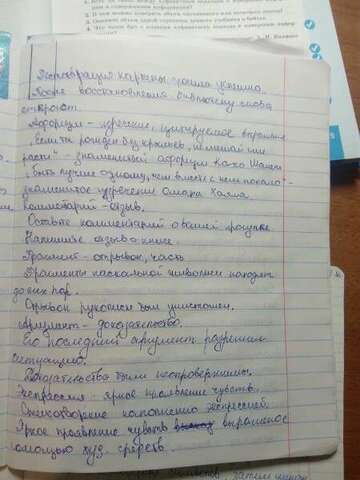 Реставрация картины прошла успешно.
После восстановления библиотеку снова
откроют.
Афоризм - изречение, цитируемое
"Если ты рождён без крыльев, не мешай им
расти" - знаменитый афоризм Коко Шанель
"Быть лучше одному, чем вместе с кем попало" -
знаменитое изречение Омара Хаяма.
Комментарий - отзыв.
Оставьте комментарий о вашей прогулке.
Напишите отзыв о книге.
Фрагмент - отрывок, часть
Фрагменты наскальной живописи находят
до сих пор.
Отрывок рукописи был уничтожен.
Аргумент - доказательство.
Его последний аргумент разрешил
ситуацию.
Доказательства были неопровержимы.
Экспрессия - яркое проявление чувств.
Стихотворение наполнено экспрессией.
Яркое проявление чувств выражено с
помощью худ. средств.